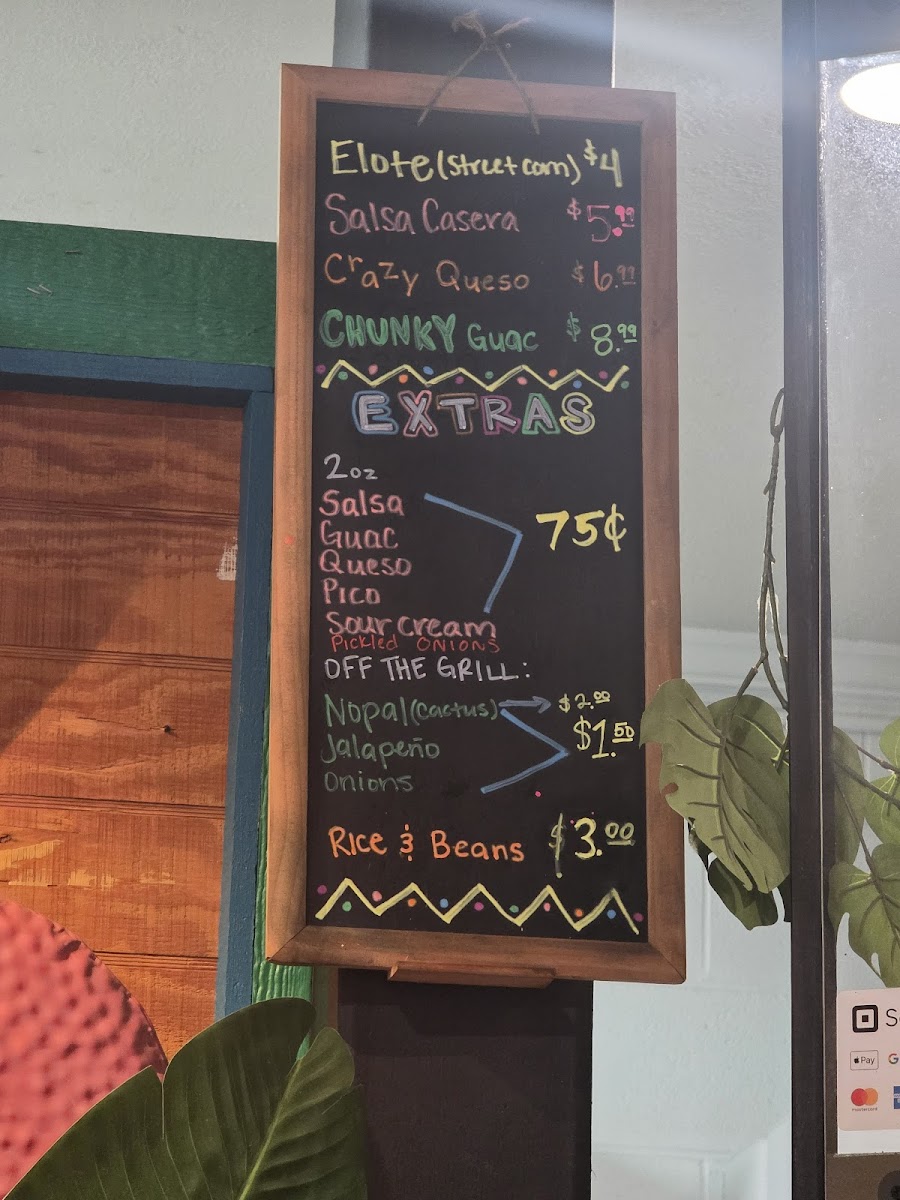 Elote (street corn) $4
Salsa Casera $5.99
Crazy Queso $6.99
CHUNKY Guac $8.99
EXTRAS
2oz
Salsa
Guac
75¢
Queso
Pico
Sour cream
Pickled ONIONS
OFF THE GRILL:
Nopal (cactus) $2.00
Jalapeño $1.50
Onions
Rice & Beans $3.00
Pay G
mastercard